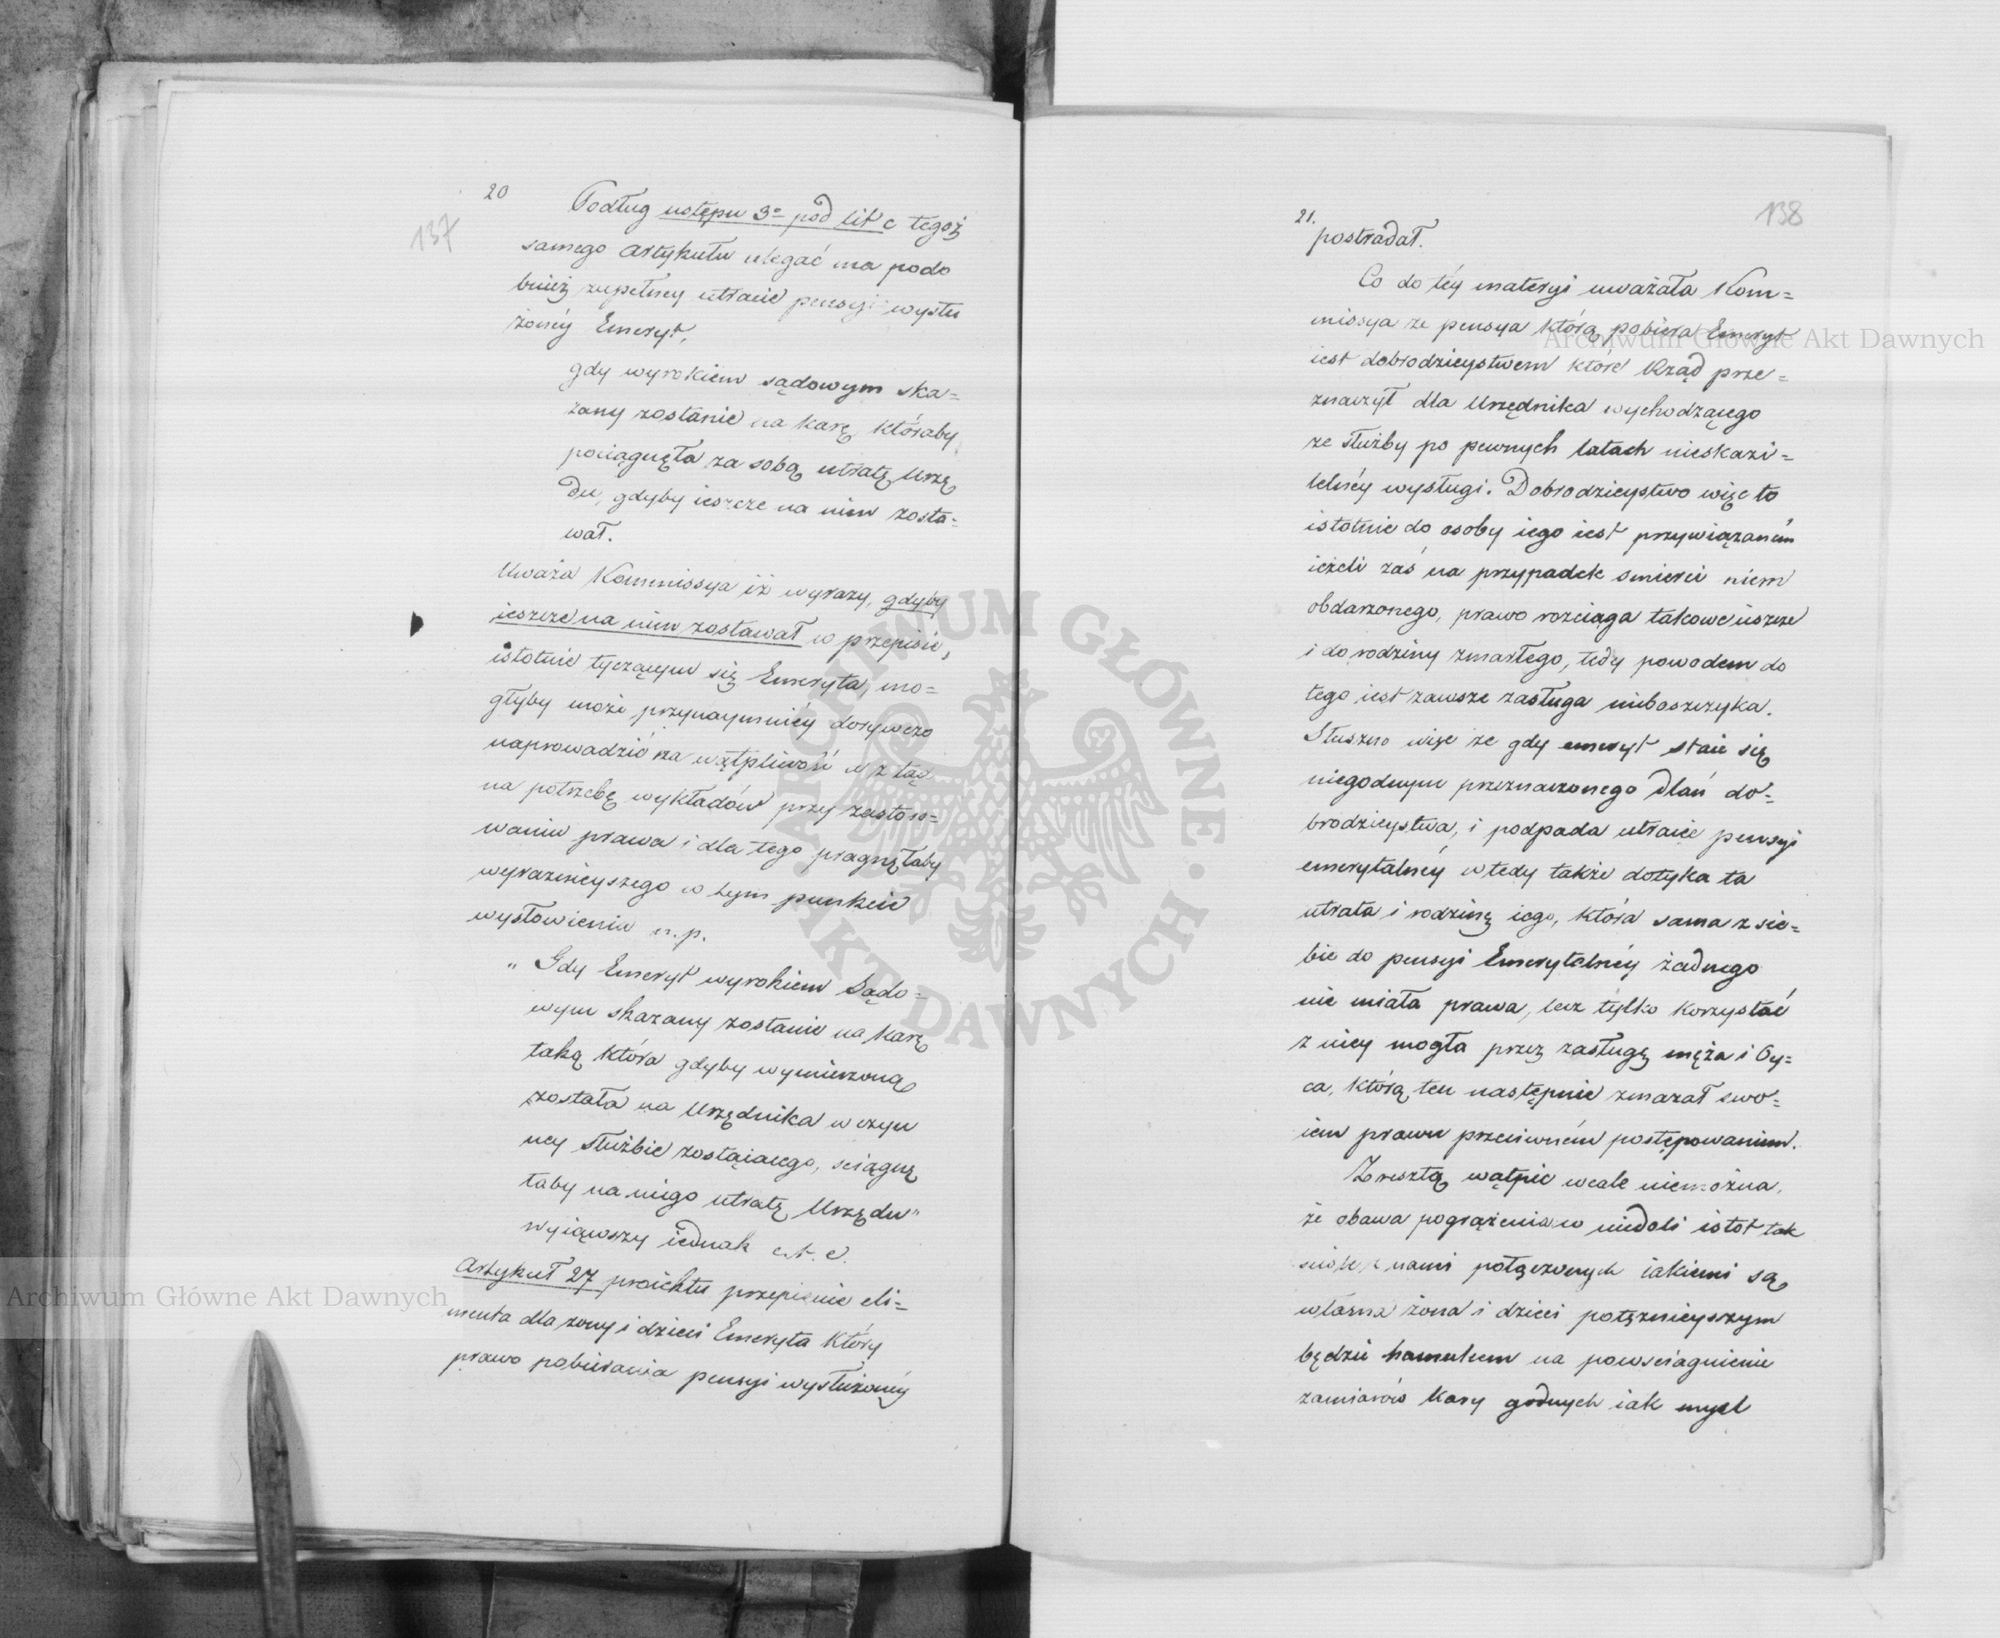 20
137
Podług ustępu 3º pod lit c tegoż
samego artykułu ulegać ma podo
bnież zupełney utracie pensyi wysłu
żonéy Emeryt,
gdy wyrokiem sądowym ska=
zany zostanie na karę któraby
pociągnęła za sobą utratę Urzę
du, gdyby ieszcze na nim zosta=
wał.
Uważa Kommissya iż wyrazy, gdyby
ieszcze na nim zostawał w przepisie,
istotnie tyczącym się Emeryta, mo=
głyby może przynaymniéy dorywczo
naprowadzić na wątpliwość a z tąd
na potrzebę wykładów przy zastoso=
waniu prawa i dla tego pragnęłaby
wyraźnieyszego w tym punkcie
wysłowienia n.p.
„ Gdy Emeryt wyrokiem Sądo=
wym skazany zostanie na karę
taką która gdyby wymierzoną
została na Urzędnika w czyn
ney służbie zostaiącego, sciągnę
łaby na niego utratę Urzędu"
wyiąwszy iednak et. c.
Artykuł 27 proiektu przepisuie ali=
menta dla żony i dzieci Emeryta który
prawo pobierania pensyi wysłużonéy
21.
138
postradał.
Co do téy materyi uważała Kom=
missya że pensya którą pobiera Emeryt
iest dobrodzieystwem które Rząd prze=
znaczył dla Urzędnika wychodzącego
ze służby po pewnych latach nieskazi=
telnéy wysługi. Dobrodzieystwo więc to
istotnie do osoby iego iest przywiązaném
ieżeli zaś na przypadek smierci niem
obdarzonego, prawo rozciąga takowe ieszcze
i do rodziny zmarłego, tedy powodem do
tego iest zawsze zasługa nieboszczyka.
Słuszno więc że gdy emeryt staie się
niegodnym przeznaczonego dlań do=
brodzieystwa, i podpada utracie pensyi
emerytalnéy wtedy także dotyka ta
utrata i rodzinę iego, która sama z sie=
bie do pensyi Emerytalnéy żadnego
nie miała prawa, lecz tylko korzystać
z niey mogła przez zasługę męża i Oy=
ca, którą ten następnie zmazał swo=
iem prawu przeciwném postępowaniem.
Zresztą wątpić wcale niemożna,
że obawa pogrążenia w niedoli istot tak
ściśle z nami połączonych iakiemi są
własna żona i dzieci potężnieyszym
będzie hamulcem na powsciągnienie
zamiarów kary godnych iak mysl
Archiwum Główne Akt Dawnych
Archiwum Główne Akt Dawnych
ARCHIWUM GŁÓWNE AKT DAWNYCH